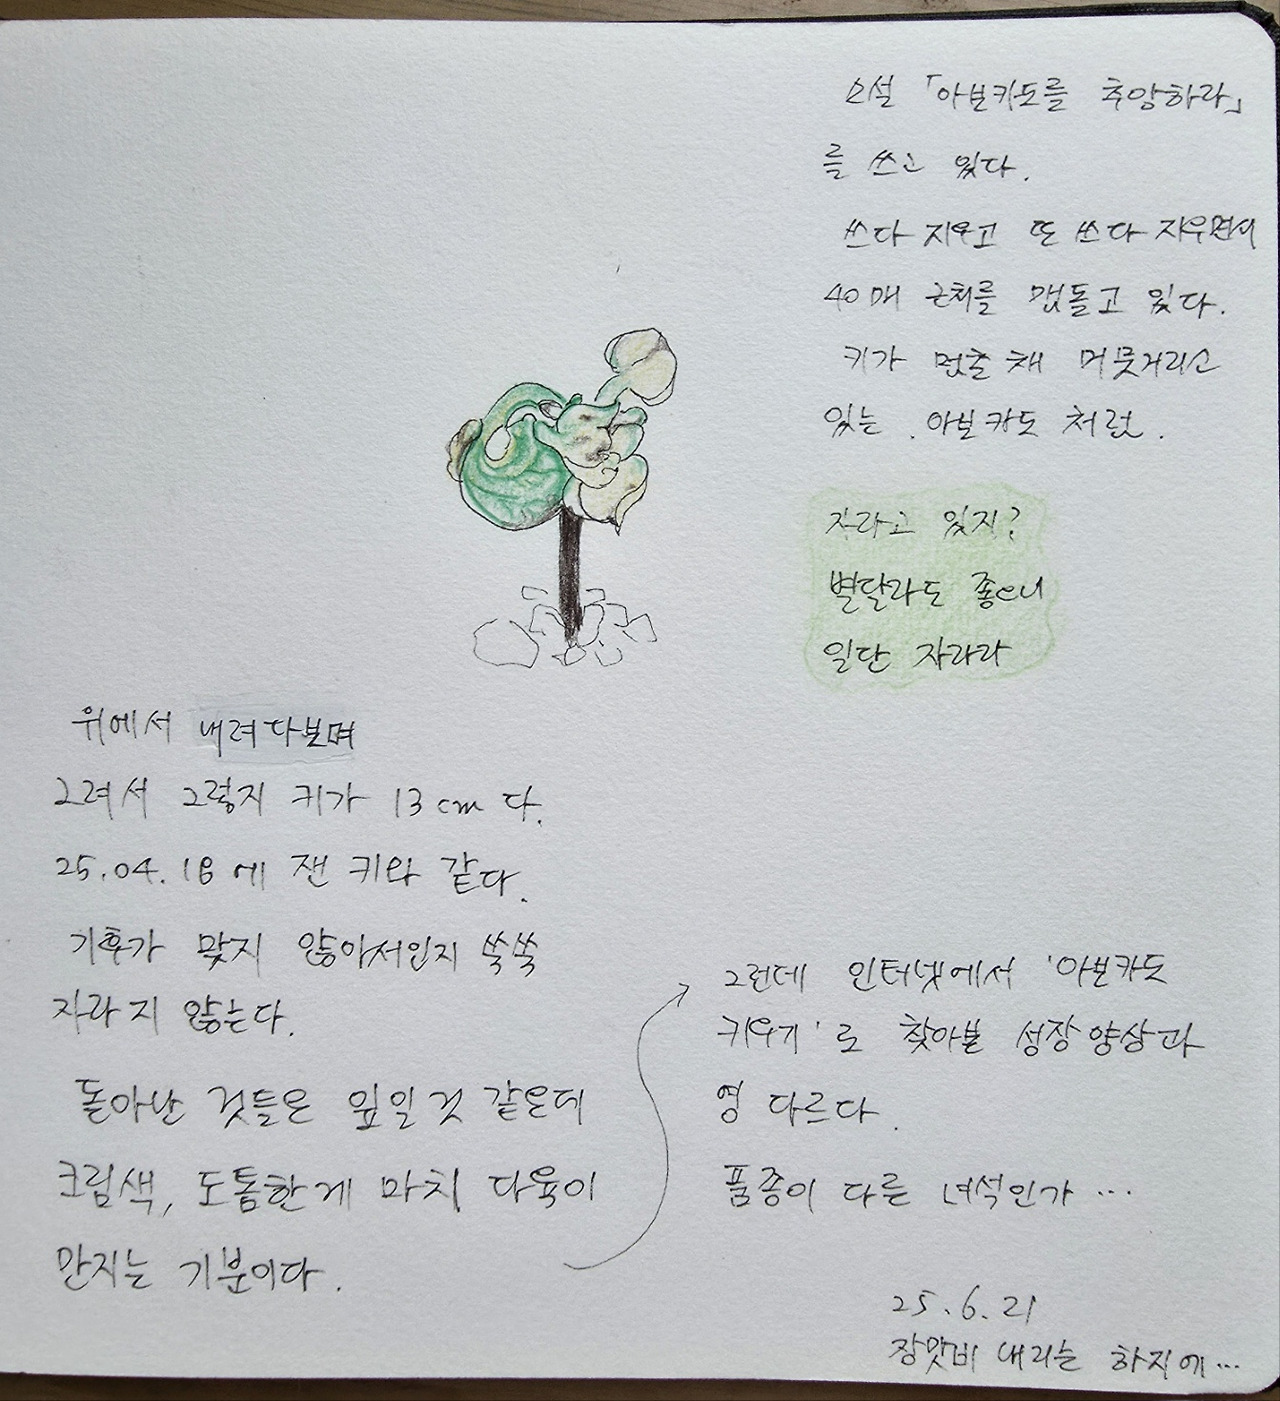 소설 「아보카도를 추앙하라」
를 쓰고 있다.
쓰다 지우고 또 쓰다 지우면서
40매 근처를 맴돌고 있다.
키가 멈춘 채 머뭇거리고
있는 아보카도 처럼.
자라고 있지?
별달라도 좋으니
일단 자라라
위에서 내려다보며
그려서 그렇지 키가 13cm다.
25.04.18에 잰 키와 같다.
기후가 맞지 않아서인지 쑥쑥
자라지 않는다.
돋아난 것들은 잎일 것 같은데
크림색, 도톰한 게 마치 다육이
만지는 기분이다.
그런데 인터넷에서 '아보카도
키우기'로 찾아본 성장 양상과
영 다르다.
품종이 다른 녀석인가…
25.6.21
장맛비 내리는 하지에…